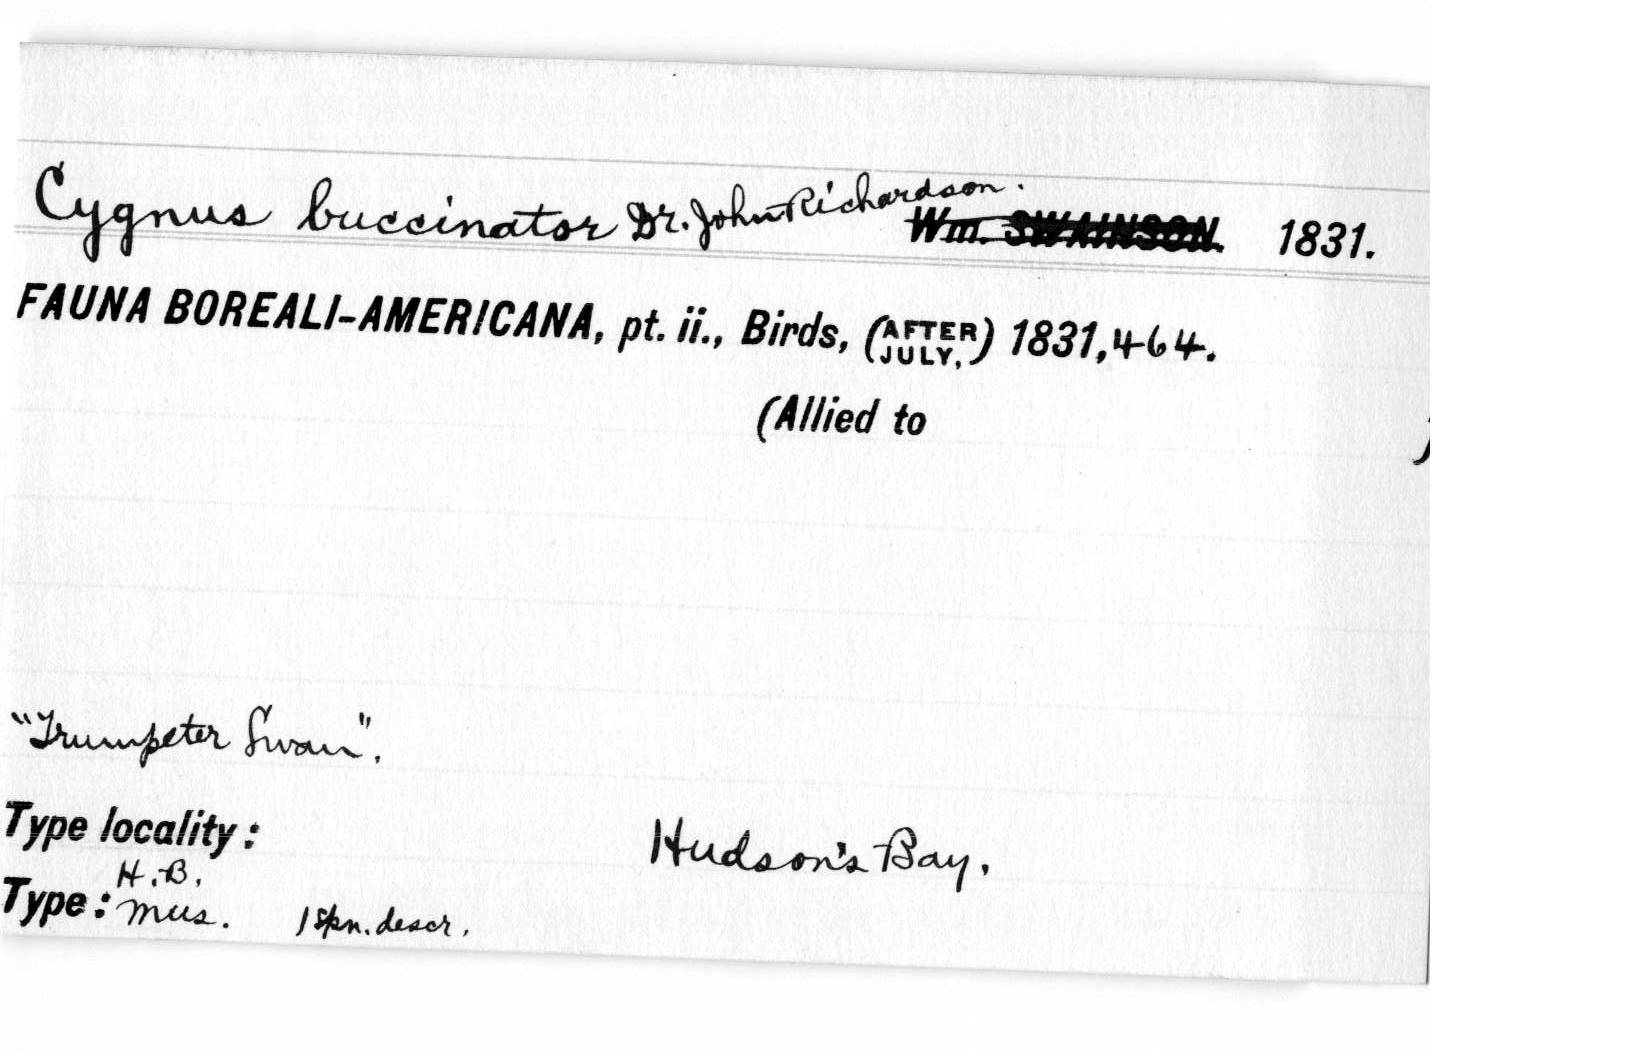 Cygnus buccinator Dr. John Richardson. Wm. SWAINSON. 1831.
FAUNA BOREALI-AMERICANA, pt. ii., Birds, (AFTER JULY,) 1831, 464.
(Allied to )
"Trumpeter Swan".
Type locality: Hudson's Bay.
H.B.
Type: Mus. 1 spn. descr.